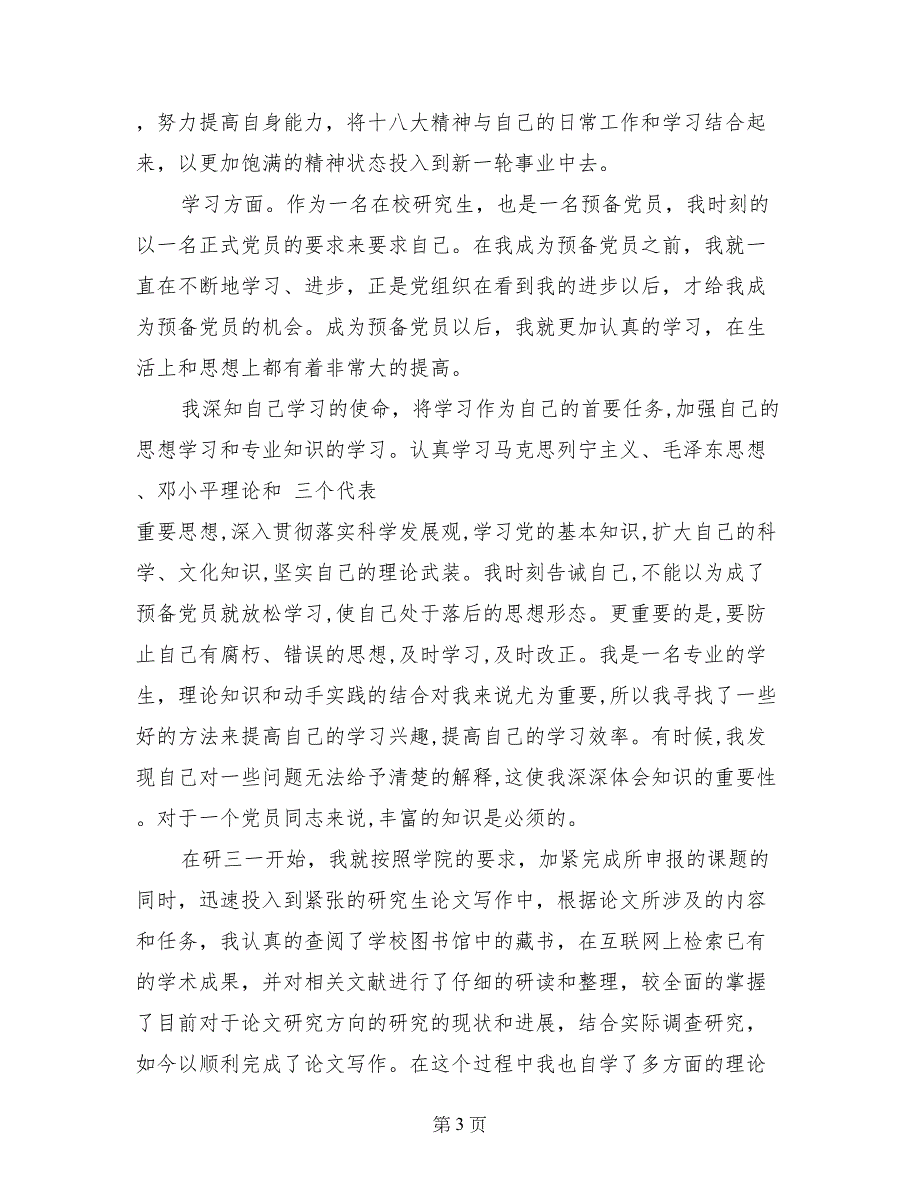 ，努力提高自身能力，将十八大精神与自己的日常工作和学习结合起
来，以更加饱满的精神状态投入到新一轮事业中去。
学习方面。作为一名在校研究生，也是一名预备党员，我时刻的
以一名正式党员的要求来要求自己。在我成为预备党员之前，我就一
直在不断地学习、进步，正是党组织在看到我的进步以后，才给我成
为预备党员的机会。成为预备党员以后，我就更加认真的学习，在生
活上和思想上都有着非常大的提高。
我深知自己学习的使命，将学习作为自己的首要任务,加强自己的
思想学习和专业知识的学习。认真学习马克思列宁主义、毛泽东思想
、邓小平理论和 三个代表
重要思想,深入贯彻落实科学发展观,学习党的基本知识,扩大自己的科
学、文化知识,坚实自己的理论武装。我时刻告诫自己,不能以为成了
预备党员就放松学习,使自己处于落后的思想形态。更重要的是,要防
止自己有腐朽、错误的思想,及时学习,及时改正。我是一名专业的学
生，理论知识和动手实践的结合对我来说尤为重要,所以我寻找了一些
好的方法来提高自己的学习兴趣,提高自己的学习效率。有时候,我发
现自己对一些问题无法给予清楚的解释,这使我深深体会知识的重要性
。对于一个党员同志来说,丰富的知识是必须的。
在研三一开始，我就按照学院的要求，加紧完成所申报的课题的
同时，迅速投入到紧张的研究生论文写作中，根据论文所涉及的内容
和任务，我认真的查阅了学校图书馆中的藏书，在互联网上检索已有
的学术成果，并对相关文献进行了仔细的研读和整理，较全面的掌握
了目前对于论文研究方向的研究的现状和进展，结合实际调查研究，
如今以顺利完成了论文写作。在这个过程中我也自学了多方面的理论
第 3 页